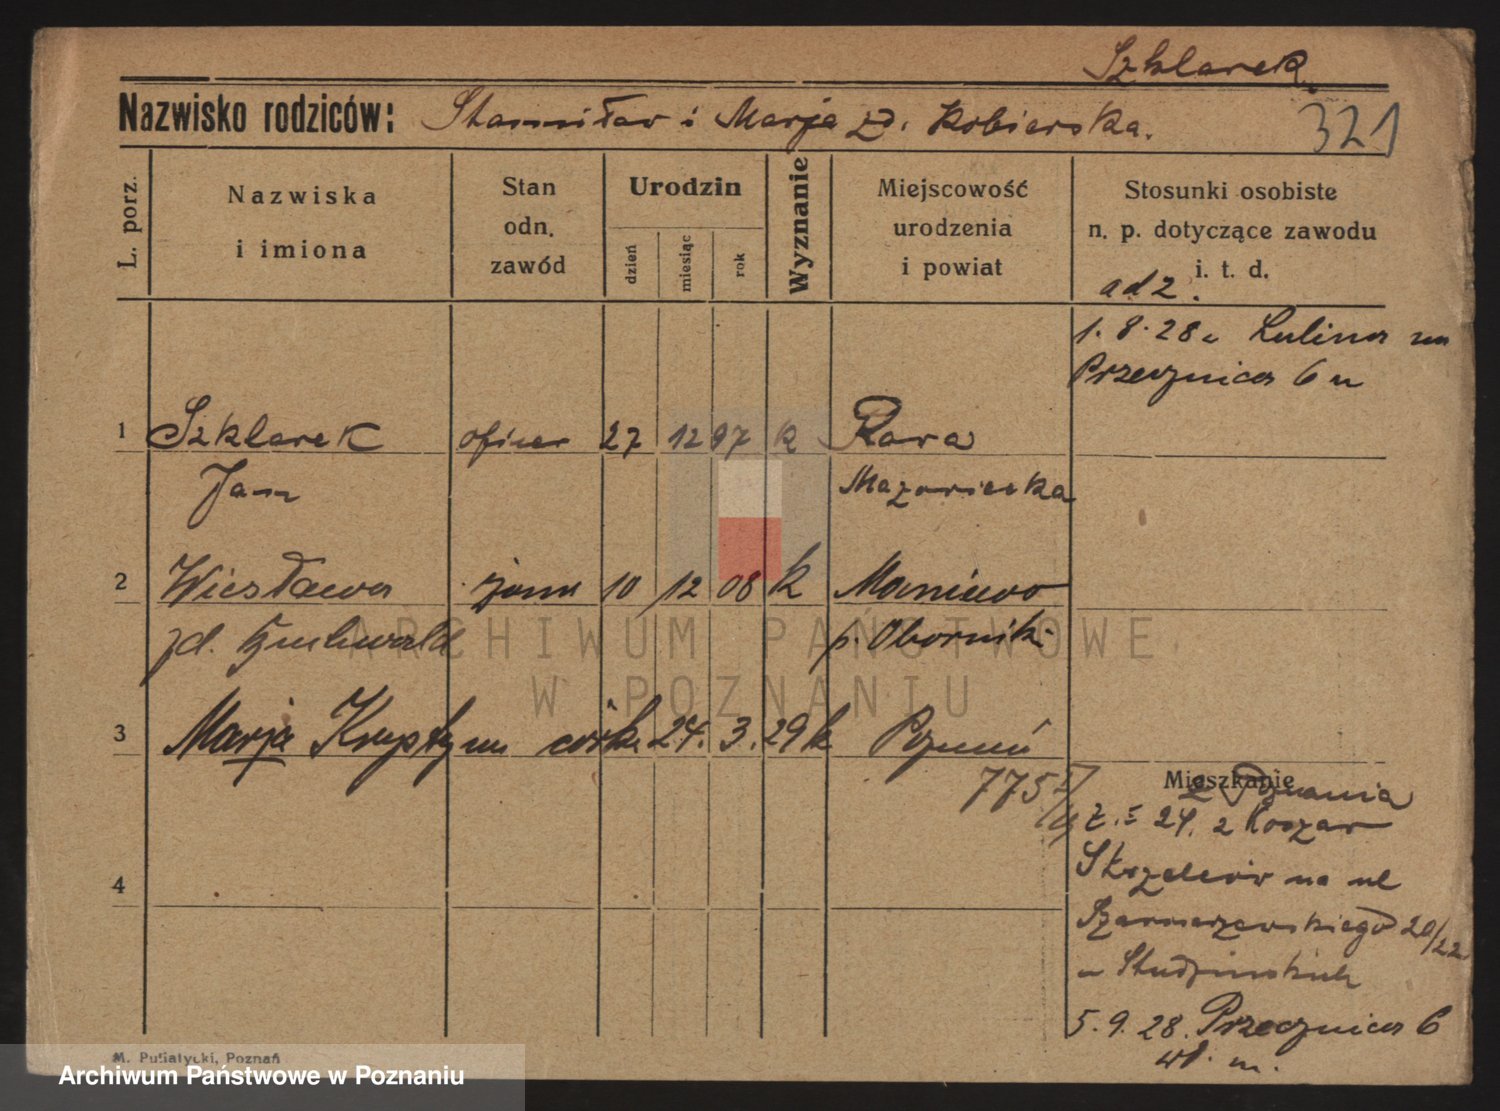 Szklarek
Nazwisko rodziców: Stanisław i Marja zd. Kobierska.
321
L. porz.
Nazwiska
i imiona
Stan
odn.
zawód
Urodzin
dzień
miesiąc
rok
Wyznanie
Miejscowość
urodzenia
i powiat
Stosunki osobiste
n. p. dotyczące zawodu
i. t. d.
ad 2.
1. 8. 28 Lulina na
Przecznica 6
1 Szklarek oficer 27 12 97 k Rawa
Jan Mazowiecka
2 Wiesława żona 10 12 08 k Maniewo
zd. p. Obornik
3 Marja Krystyna córka 24. 3. 29 k Poznań
775
Mieszkanie
z Poznania
24. z Koszar
4
Strzelców na ul
Szamarzewskiego 20/22
u Studzińskich
5. 9. 28. Przecznica 6
wł. m.
M. Putiatycki, Poznań
ARCHIWUM PAŃSTWOWE
W POZNANIU
Archiwum Państwowe w Poznaniu